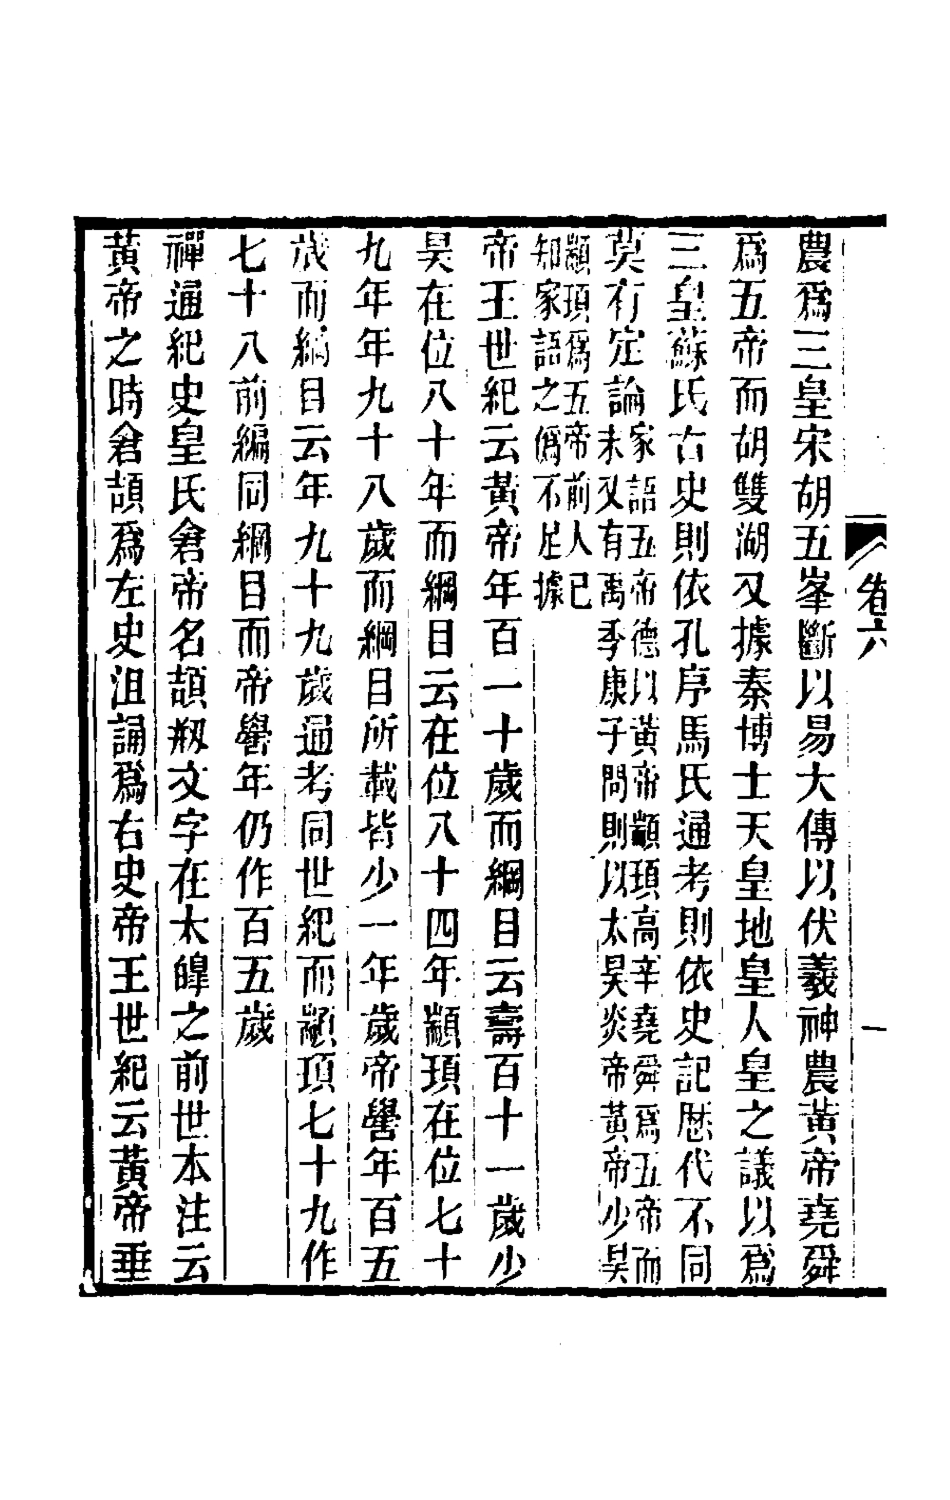 卷六
一
農爲三皇宋胡五峯斷以易大傳以伏羲神農黃帝堯舜
爲五帝而胡雙湖又據秦博士天皇地皇人皇之議以爲
三皇蘇氏古史則依孔序馬氏通考則依史記厯代不同
莫有定論家語五帝德以黃帝顓頊高辛堯舜爲五帝而
末又有禹季康子問則以太昊炎帝黃帝少昊
顓頊爲五帝前人已
知家語之僞不足據
帝王世紀云黃帝年百一十歲而綱目云壽百十一歲少
昊在位八十年而綱目云在位八十四年顓頊在位七十
九年年九十八歲而綱目所載皆少一年歲帝嚳年百五
歲而綱目云年九十九歲通考同世紀而顓頊七十九作
七十八前編同綱目而帝嚳年仍作百五歲
禪通紀史皇氏倉帝名頡刱文字在太皥之前世本注云
黃帝之時倉頡爲左史沮誦爲右史帝王世紀云黃帝垂